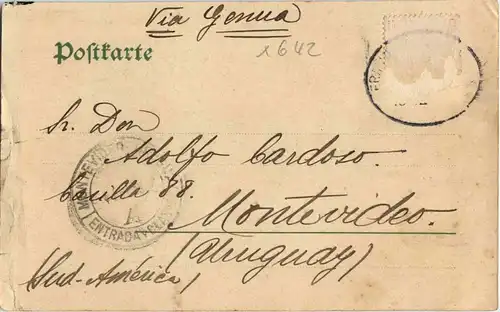 Via Genua
1642
Postkarte
Sr. Don
Adolfo Cardoso.
Casilla 88.
Montevideo.
(Uruguay)
Sud-América,
MONTEVIDEO
ENTRADA